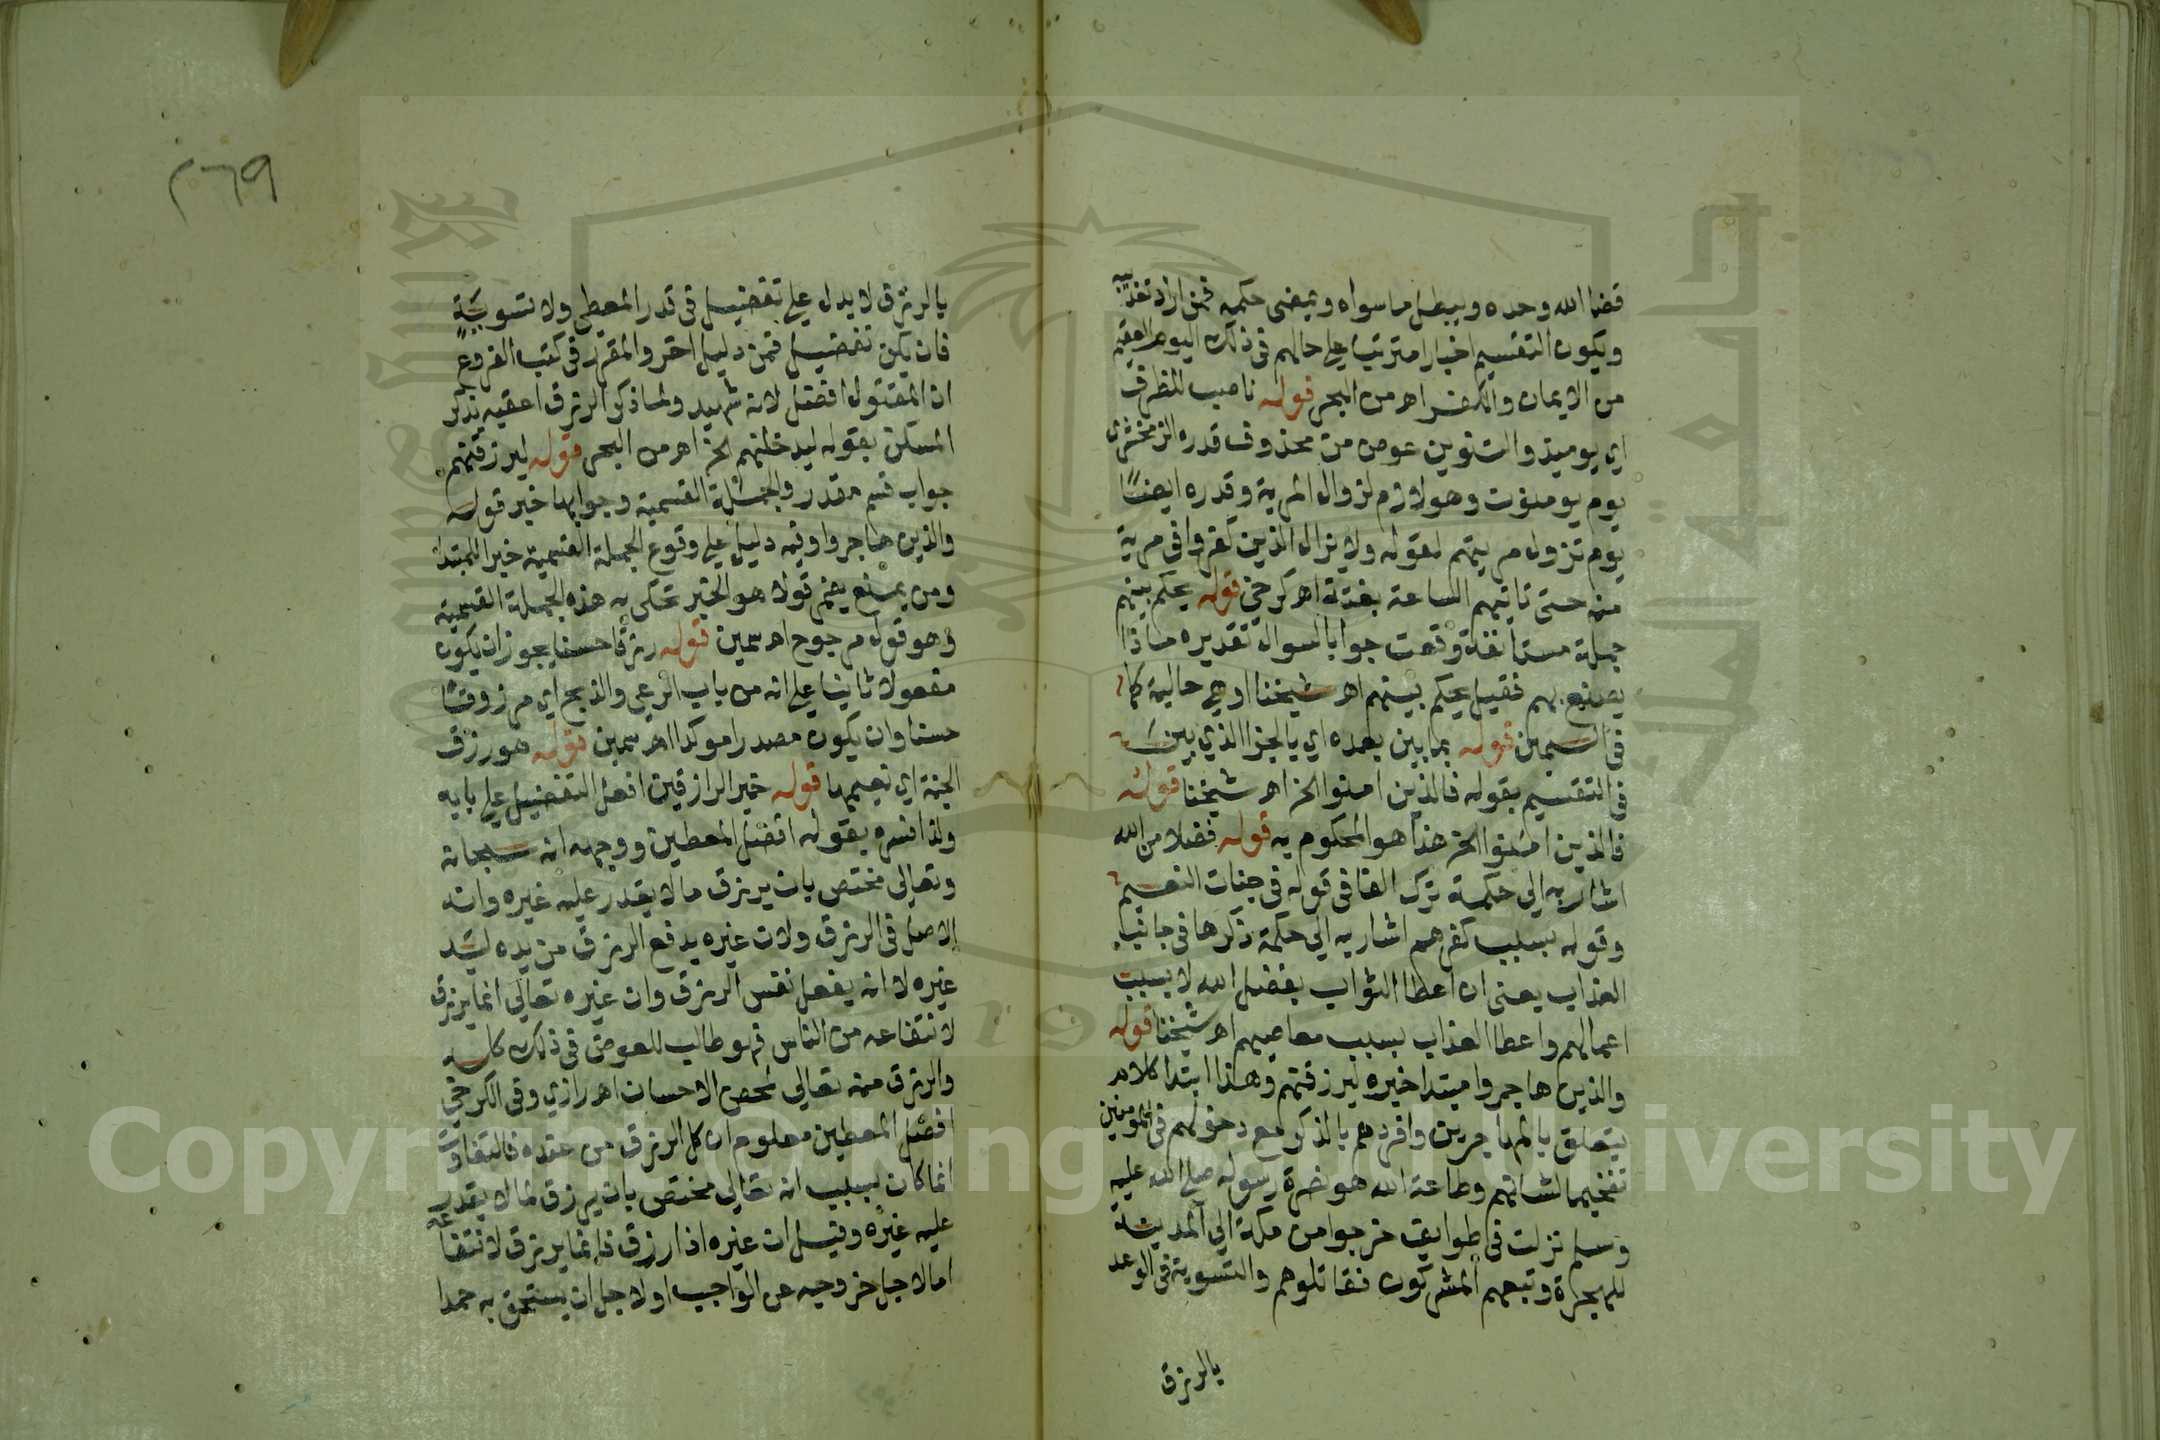 قضا الله وحده ويبطل ما سواه ويمضى حكمه فمن اراد تعذيبه
ويكون التقسيم اخبارا مترتبا على حالهم فى ذلك اليوم العقيم
من الايمان والكفر اهر من البحر قوله ناصب للظرف
اي يوميذ والتنوين عوض من محذوف قدره الزمخشري
يوم يومنون وهو لازم لزوال المرية وقدره ايضًا
يوم تزول مريتهم لقوله ولا يزال الذين كفروا فى مرية
منه حتى تاتيهم الساعة بغتة اهر كرخي قوله يحكم بينهم
جملة مستانفة وقعت جوابا لسوال تقديره ماذا
يصنع بهم فقيل يحكم بينهم اهر شيخنا او هي حالية كما
فى السمين قوله بما بين بعده اي بالجزا الذي بين
فى التقسيم بقوله فالذين امنوا الخ اهر شيخنا قوله
فالذين امنوا الخ هذا هو المحكوم به قوله فضلا من الله
اشار به الى حكمة ترك الفا فى قوله فى جنات النعيم
وقوله بسبب كفرهم اشار به الى حكمة ذكرها فى جانب
العذاب يعنى ان اعطا الثواب بفضل الله لا بسبب
اعمالهم واعطا العذاب بسبب معاصيهم اهر شيخنا قوله
والذين هاجروا مبتدا خبره ليرزقنهم وهذا ابتدا كلام
يتعلق بالمهاجرين وافردهم بالذكر مع دخولهم فى المومنين
تفخيما لشانهم وطاعة الله هو نصرة رسوله صلى الله عليه
وسلم نزلت فى طوايف خرجوا من مكة الى المدينة
للهجرة وتبعهم المشركون فقاتلوهم والتسوية فى الوعد
بالرزق
٢٦٩
بالرزق لا يدل على تفضيل فى قدر المعطى ولا تسوية
فان يكن تفضيل فمن دليل اخر والمقرر فى كتب الفروع
ان المقتول افضل لانه شهيد ولما ذكر الرزق اعقبه بذكر
المسكن بقوله ليدخلنهم الخ اهر من البحر قوله ليرزقنهم
جواب قسم مقدر والجملة القسمية وجوابها خبر قوله
والذين هاجروا وفيه دليل على وقوع الجملة القسمية خبرا للمبتدا
ومن يمنع يضمر قولا هو الخبر تحكى به هذه الجملة القسمية
وهو قول مرجوح اهر سمين قوله رزقا حسنا يجوز ان يكون
مفعولا ثانيا على انه من باب الرعي والذبح اي مرزوقًا
حسنا وان يكون مصدرا موكدا اهر سمين قوله هو رزق
الجنة اي نعيمها قوله خير الرازقين افعل التفضيل على بابه
ولذا فسره بقوله افضل المعطين ووجهه انه سبحانه
وتعالى مختص بان يرزق ما لا يقدر عليه غيره وانه
الاصل فى الرزق ولان غيره يدفع الرزق من يده ليد
غيره لا انه يفعل نفس الرزق وان غيره تعالى انما يرزق
لانتفاعه من الناس فهو طالب للعوض فى ذلك كله
والرزق منه تعالى لمحض الاحسان اهر رازي وفى الكرخي
افضل المعطين معلوم ان كل الرزق من عنده فالتفاوت
انما كان بسبب انه تعالى مختص بان يرزق لما لا يقدر
عليه غيره وقيل ان غيره اذا رزق فانما يرزق لانتفاعه
اما لاجل خروجه من الواجب او لاجل ان يستحق به حمدا